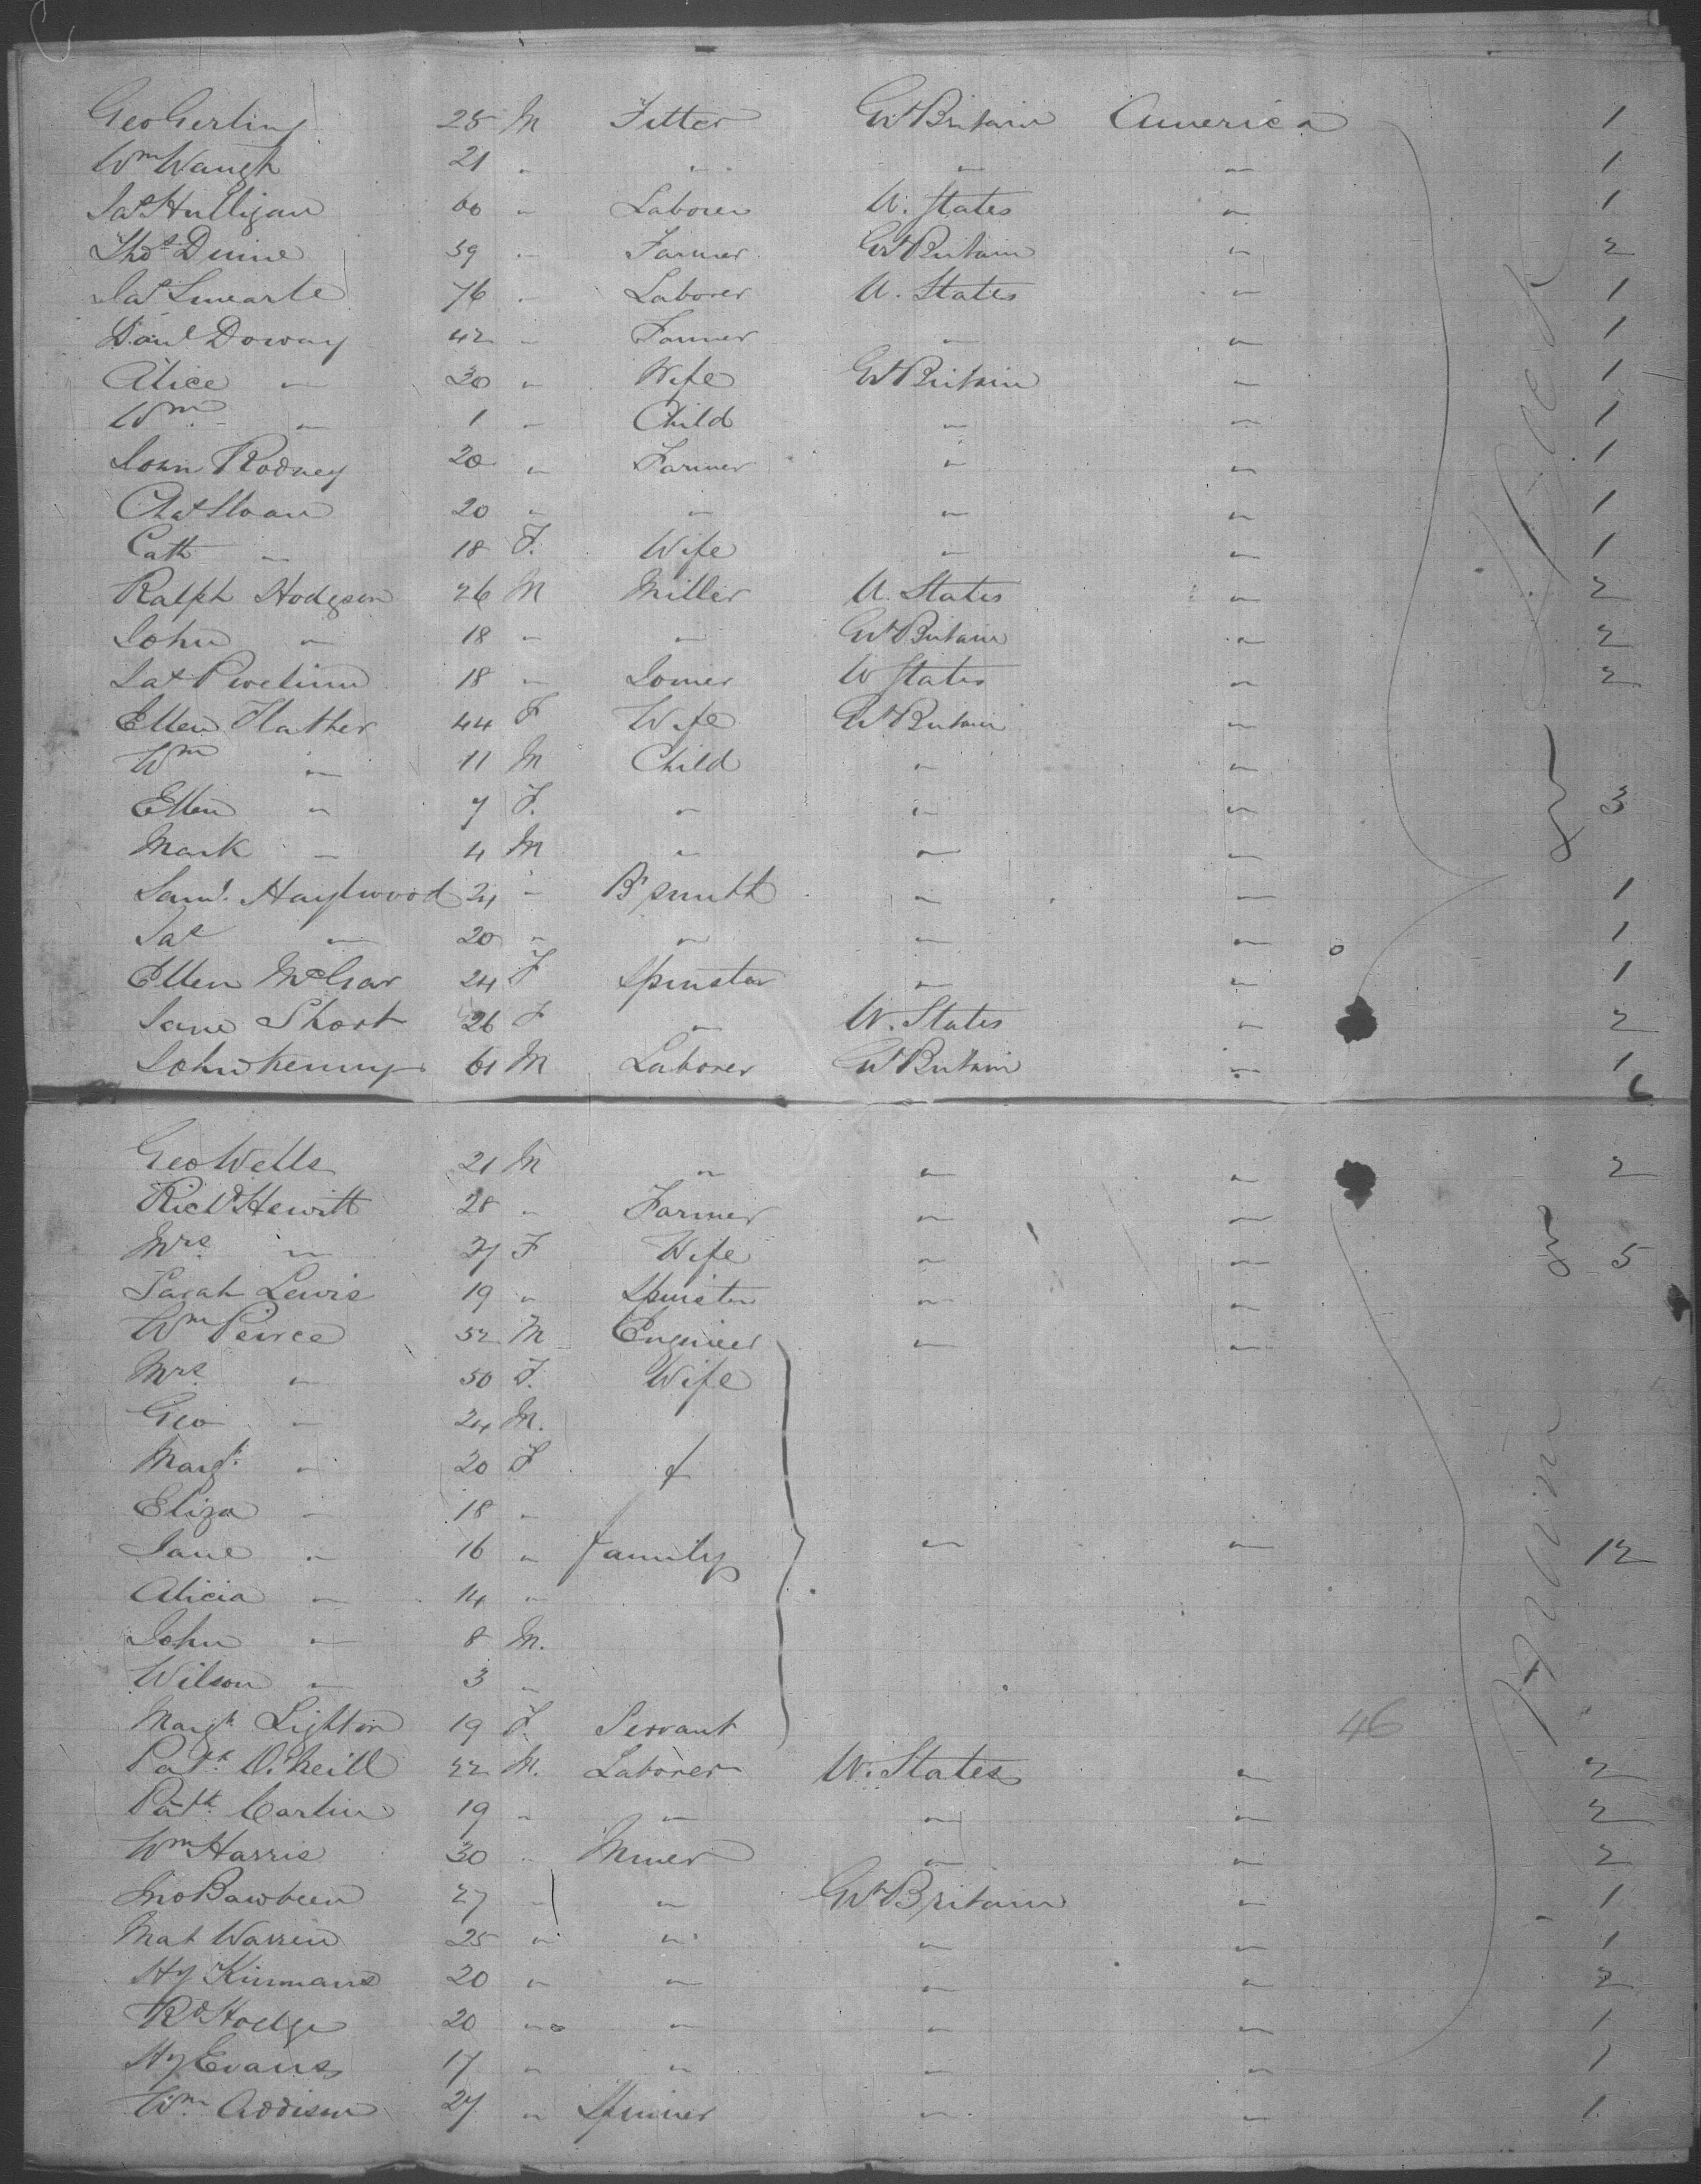 Geo Gerling 25 M Fitter Gt Britain America 1
Wm Waugh 21 " " " " 1
Jas Hulligan 60 " Laborer U. States " 1
Thos Dunne 59 " Farmer Gt Britain " 2
Jas 76 " Laborer U. States " 1
Danl Doway 42 " Farmer " " 1
Alice " 30 " Wife Gt Britain " 1
Wm " 1 " Child " " 1
John Rodney 20 " Farmer " " 1
Chas Sloan 20 " " " " 1
Cath " 18 F. Wife " " 1
Ralph Hodgson 26 M Miller U. States " 2
John " 18 " " Gt Britain " 2
Jas 18 " U States " 2
Ellen Flather 44 F Wife Gt Britain "
Wm " 11 M Child " "
Ellen " 7 F. " " " 3
Mark " 4 M " " "
Saml. Haywood 24 " B smith " " 1
Jas " 20 " " " " 1
Ellen McGrar 24 F Spinster " " 1
Jane Short 26 F " U. States " 2
John Kenny 61 M Laborer Gt Britain " 1
6
Geo Wells 21 M " " " 2
Richd Hewitt 28 " Farmer " "
Mrs. " 27 F Wife " " 5
Sarah Lewis 19 " Spinster " "
Wm Peirce 52 M Engineer " "
Mrs " 50 F. Wife
Geo " 24 M.
Margt. " 20 F &
Eliza " 18 "
Jane " 16 " family " " 12
Alicia " 14 "
John " 8 M.
Wilson " 3 "
Margt Lighton 19 F. Servant 46 "
Patk. O'Neill 22 M. Laborer U. States " 2
Patk. Carlin 19 " " " " 2
Wm Harris 30 " Miner " " 2
Jno Bawbeen 27 " " Gt Britain " 1
Mat Warren 25 " " " " 1
Hy Kinmans 20 " " " " 2
Rd Hodge 20 " " " " 1
Hy Evans 17 " " " " 1
Wm Addison 27 " Spinner " " 1